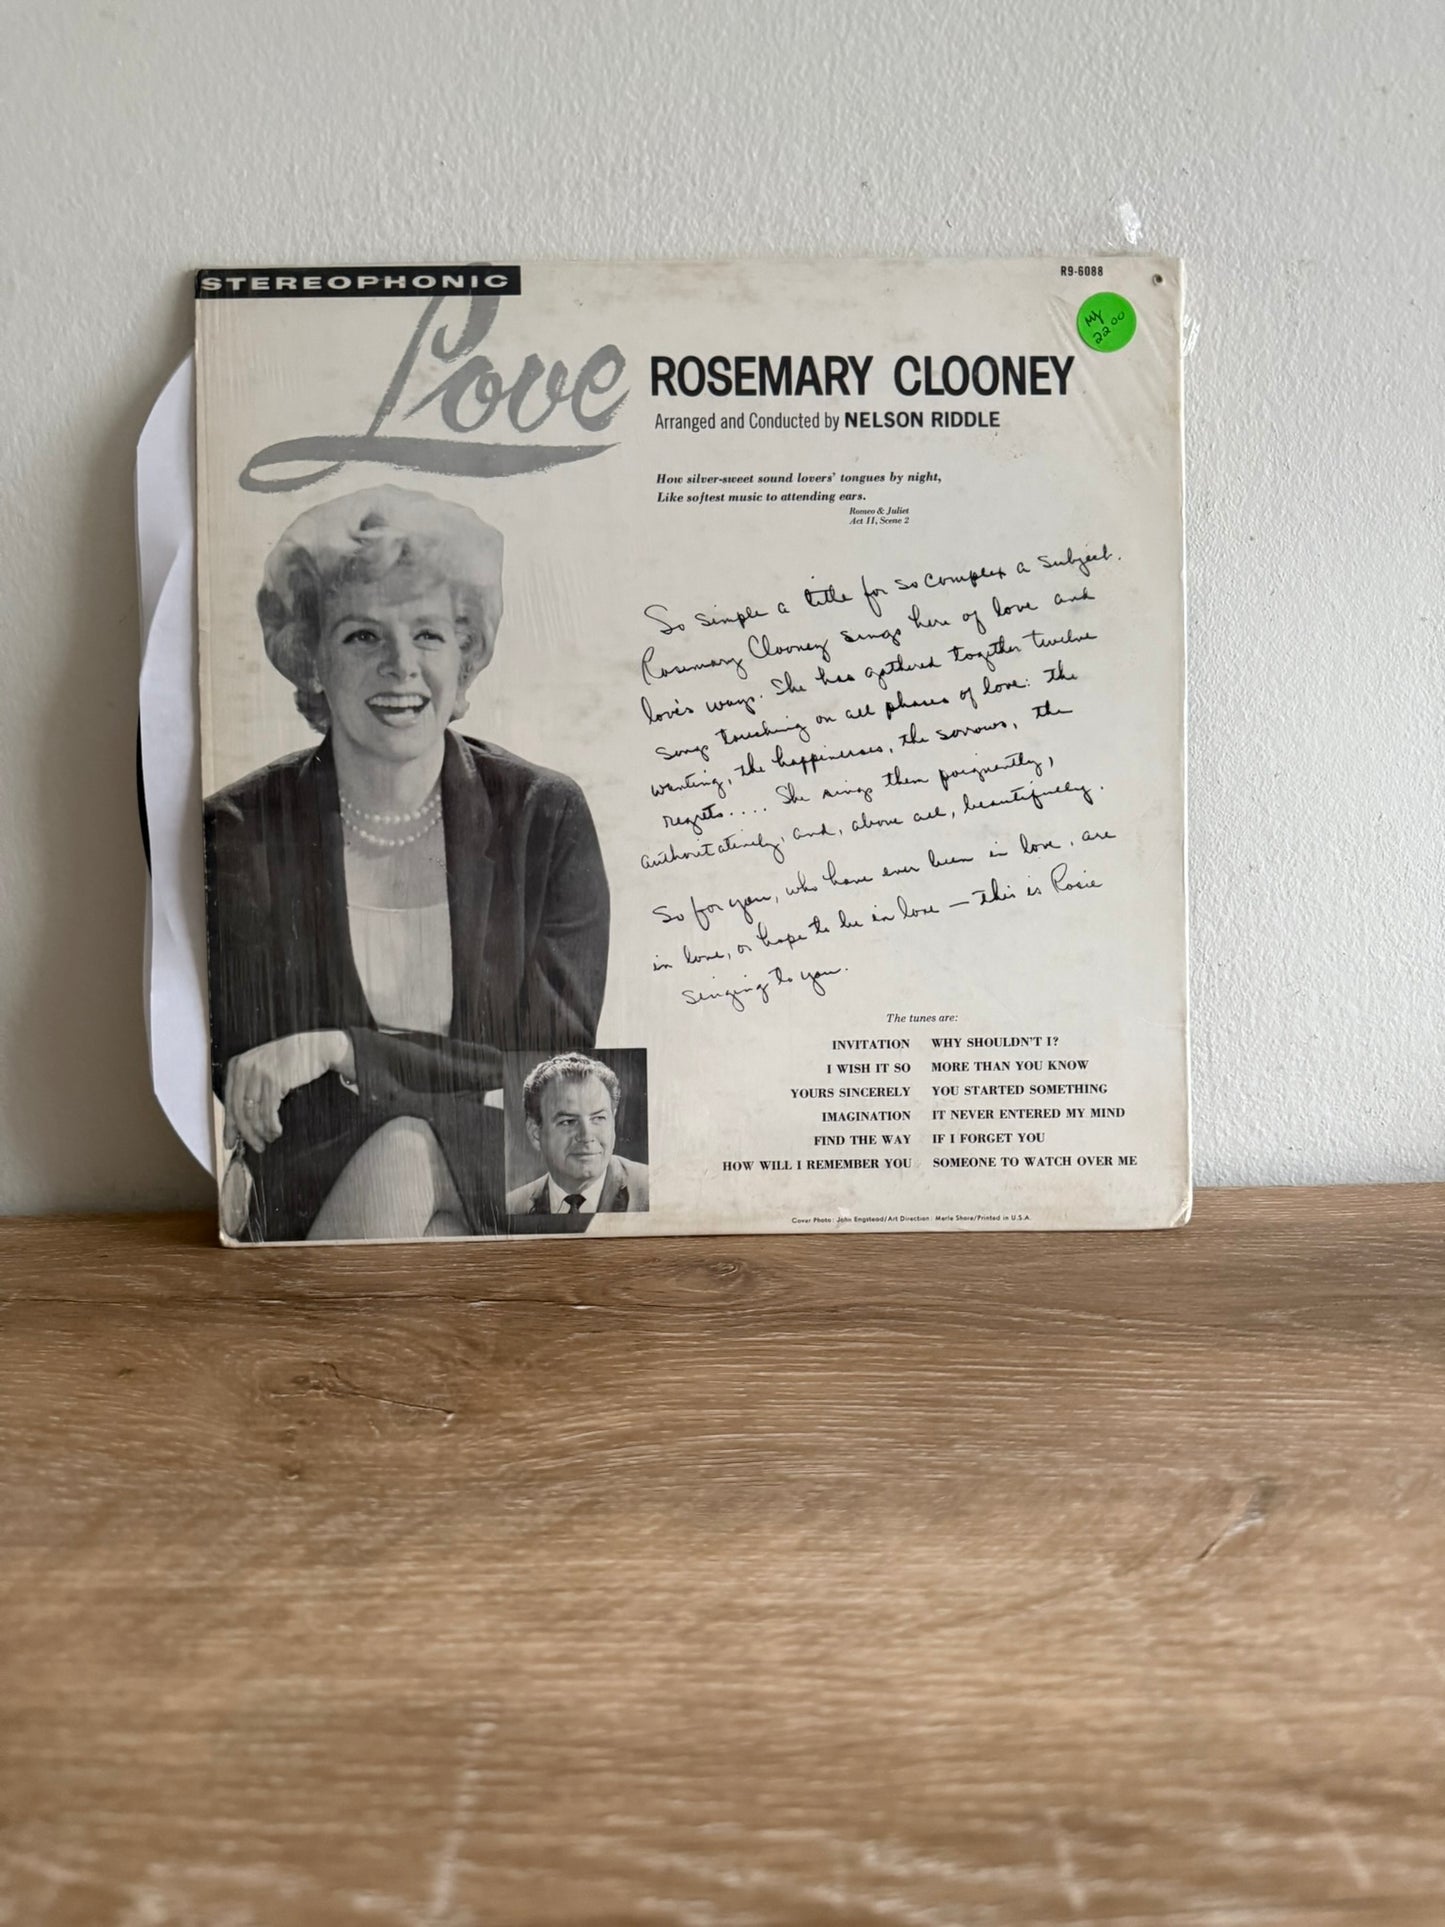 STEREOPHONIC
R9-6088
My
22.00
Love
ROSEMARY CLOONEY
Arranged and Conducted by NELSON RIDDLE
How silver-sweet sound lovers' tongues by night,
Like softest music to attending ears.
Romeo & Juliet
Act II, Scene 2
So simple a title for so complex a subject.
Rosemary Clooney sings here of love and
love's ways. She has gathered together twelve
songs touching on all phases of love: the
wanting, the happinesses, the sorrows, the
regrets.... She sings them poignantly,
authoritatively, and, above all, beautifully.
So for you, who have ever been in love, are
in love, or hope to be in love — this is Rosie
singing to you.
The tunes are:
INVITATION WHY SHOULDN'T I?
I WISH IT SO MORE THAN YOU KNOW
YOURS SINCERELY YOU STARTED SOMETHING
IMAGINATION IT NEVER ENTERED MY MIND
FIND THE WAY IF I FORGET YOU
HOW WILL I REMEMBER YOU SOMEONE TO WATCH OVER ME
Cover Photo: John Engstead/Art Direction: Merle Shore/Printed in U.S.A.